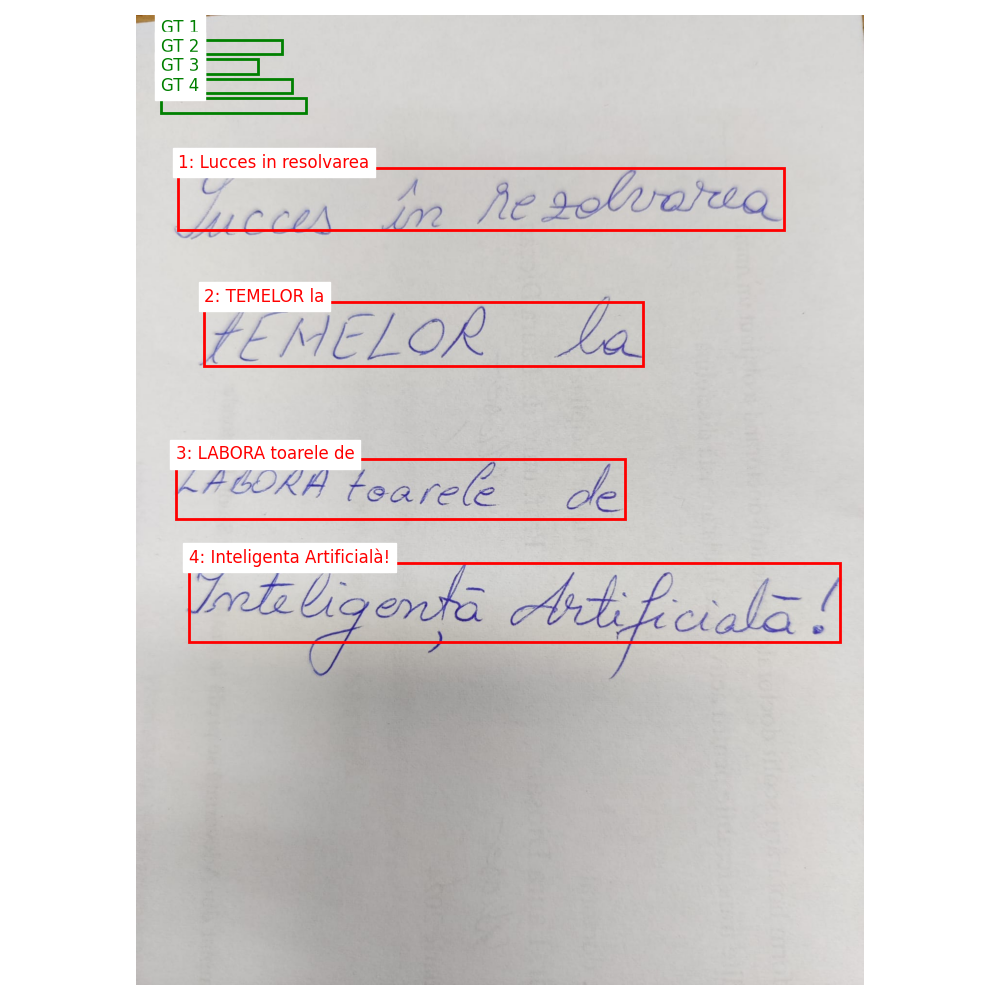 GT 1
GT 2
GT 3
GT 4
1: Lucces in resolvarea
Succes în rezolvarea
2: TEMELOR la
tEMELOR la
3: LABORA toarele de
LABORA toarele de
4: Inteligenta Artificialà!
Inteligență Artificială!